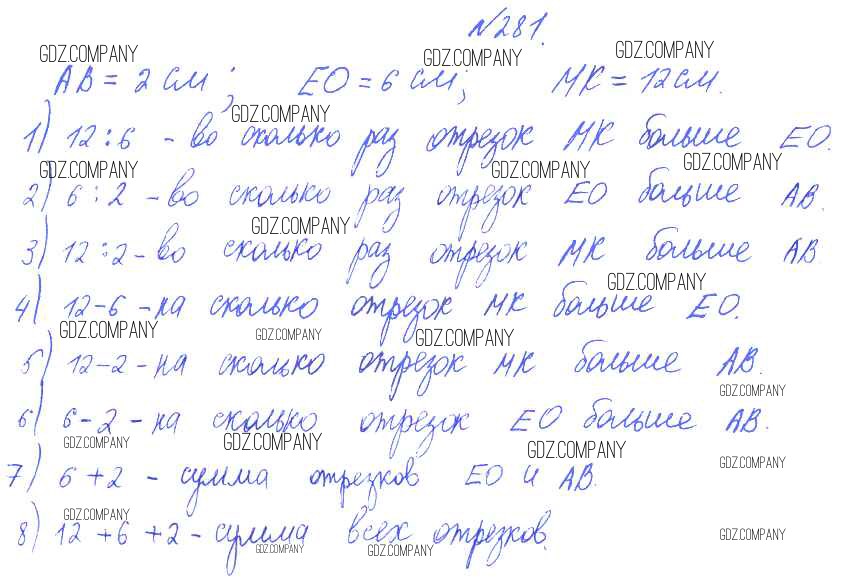 №281.
GDZ.COMPANY GDZ.COMPANY GDZ.COMPANY
АВ = 2 см; ЕО = 6 см; МК = 12 см.
GDZ.COMPANY
1) 12 : 6 - во сколько раз отрезок МК больше ЕО.
GDZ.COMPANY GDZ.COMPANY GDZ.COMPANY
2) 6 : 2 - во сколько раз отрезок ЕО больше АВ.
GDZ.COMPANY
3) 12 : 2 - во сколько раз отрезок МК больше АВ
GDZ.COMPANY
4) 12 - 6 - на сколько отрезок МК больше ЕО.
GDZ.COMPANY GDZ.COMPANY GDZ.COMPANY
5) 12 - 2 - на сколько отрезок МК больше АВ.
GDZ.COMPANY
6) 6 - 2 - на сколько отрезок ЕО больше АВ.
GDZ.COMPANY GDZ.COMPANY GDZ.COMPANY GDZ.COMPANY
7) 6 + 2 - сумма отрезков ЕО и АВ.
GDZ.COMPANY
8) 12 + 6 + 2 - сумма всех отрезков.
GDZ.COMPANY GDZ.COMPANY GDZ.COMPANY